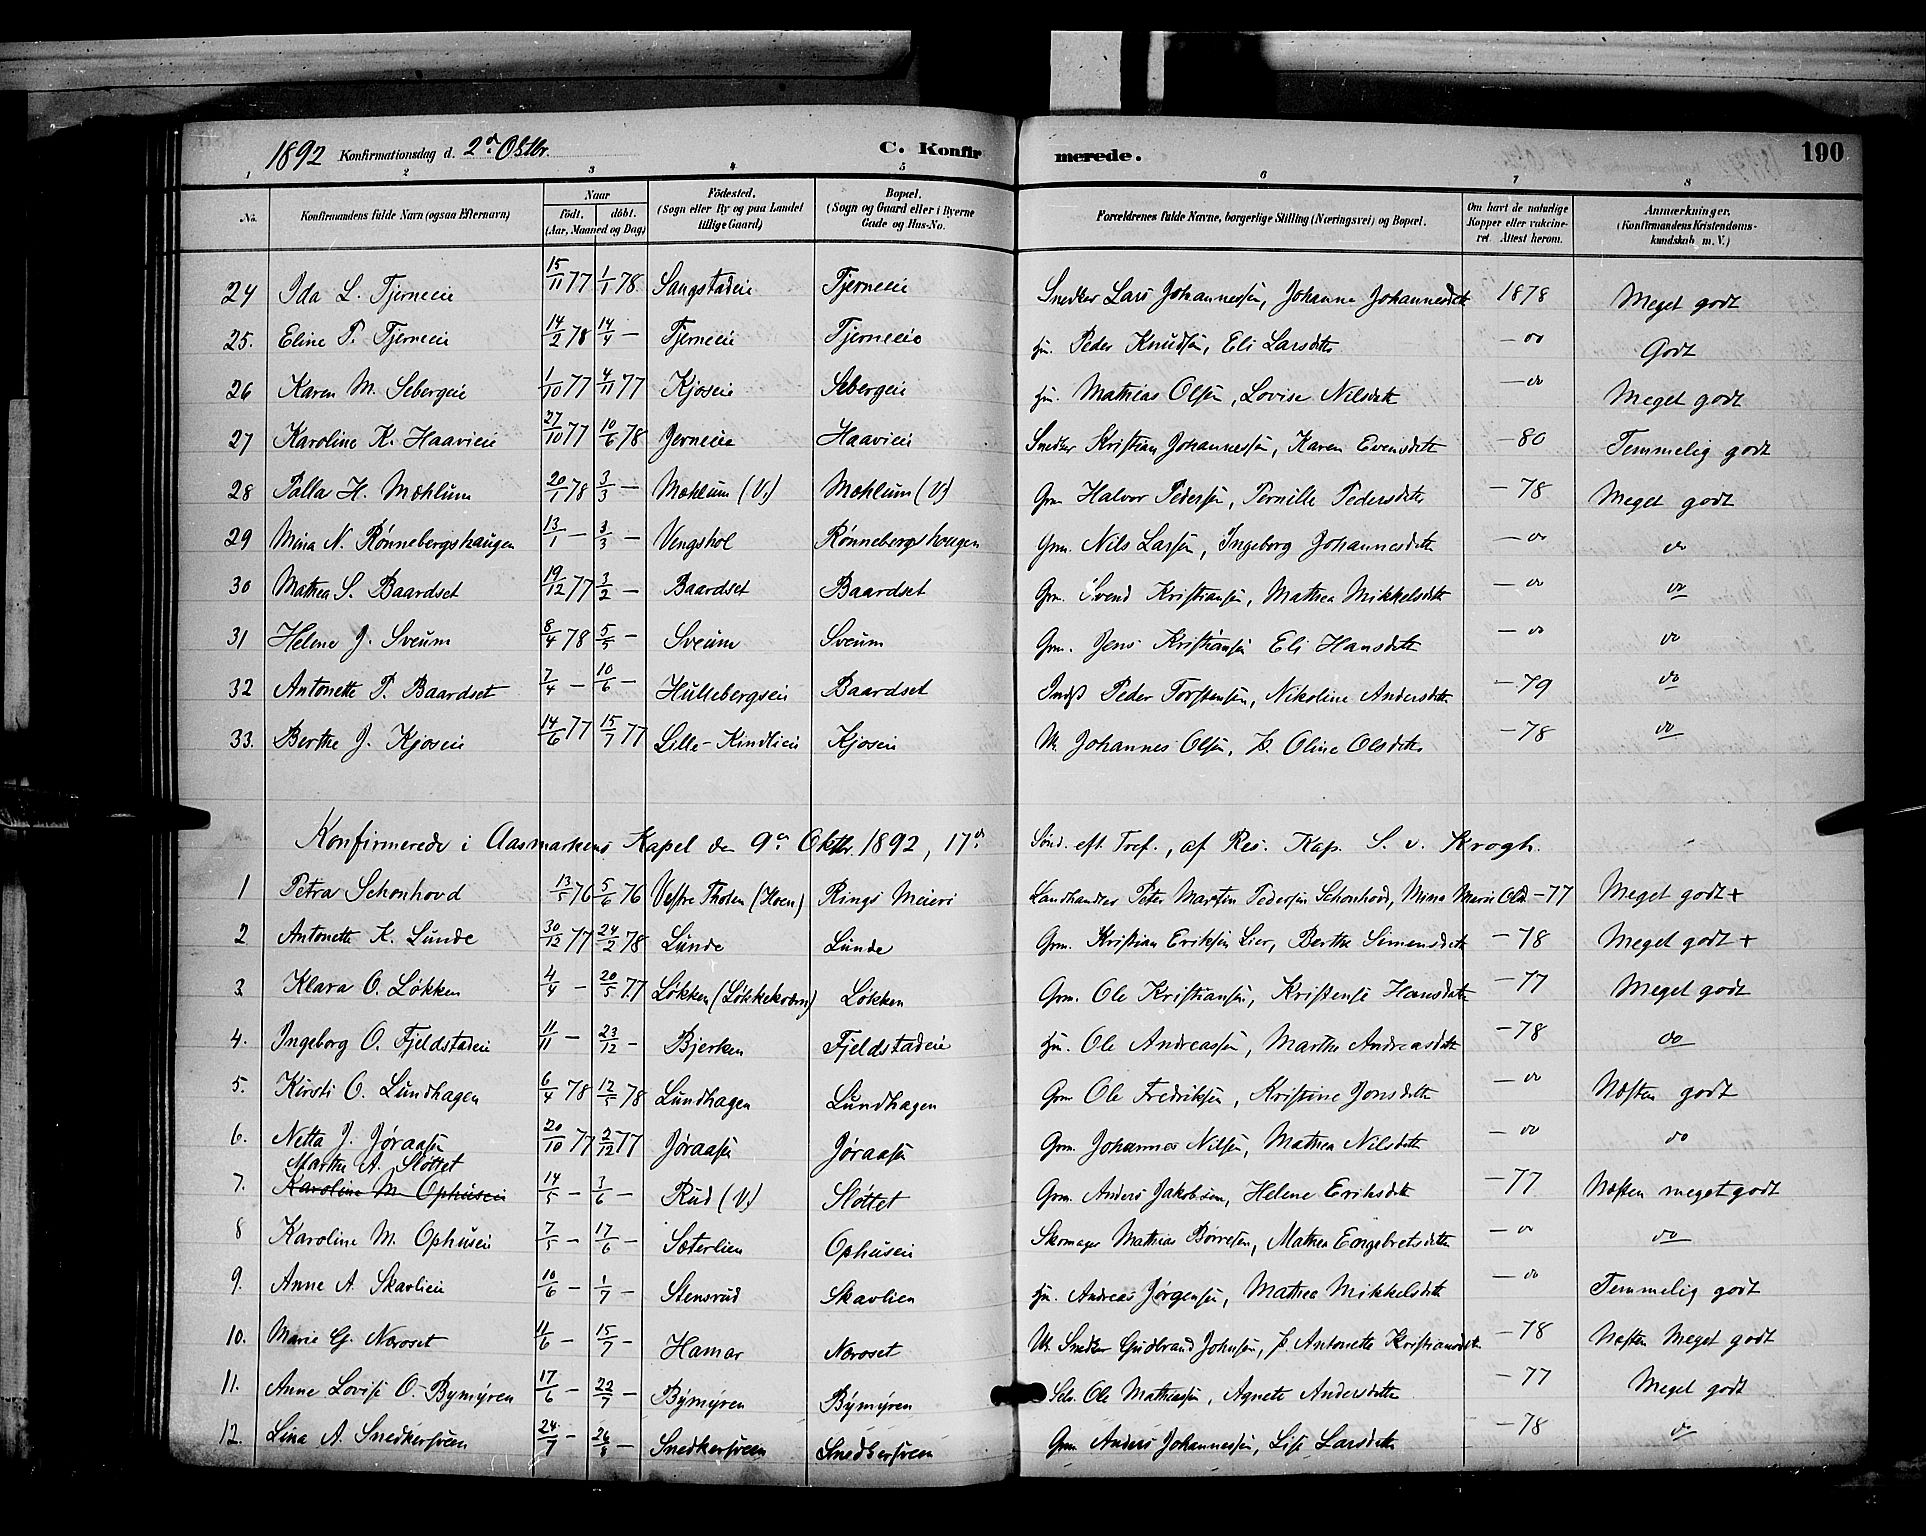 1892 Konfirmationsdag d. 2den Oktbr. C. Konfirmerede. 190
1 2 3 4 5 6 7 8
No. Konfirmandens fulde Navn (ogsaa Efternavn) Naar födt. döbt. (Aar, Maaned og Dag) Födested. (Sogn eller By og paa Landet tillige Gaard) Bopæl. (Sogn og Gaard eller i Byerne Gade og Hus-No. Forældrenes fulde Navne, borgerlige Stilling (Næringsvei) og Bopæl. Om havt de naturlige Kopper eller vaccineret. Attest herom. Anmærkninger. (Konfirmandens Kristendomskundskab m. V.)
24 Ida L. Tjerneeie 15/11 77 1/1 78 Sangstadeie Tjerneeie Snedker Lars Johannessen, Johanne Johannesdatter 1878 Meget godt
25. Eline P. Tjerneeie 14/2 78 14/4 — Tjerneeie Tjerneeie Hm. Peder Knudsen, Eli Larsdatter — do Godt
26 Karen M. Sebergeie 1/10 77 4/11 77 Kjoseie Sebergeie Hm. Mathias Olsen, Lovise Nilsdatt — do Meget godt
27 Karoline K. Haavieie 27/10 77 10/6 78 Jerneeie Haavieie Snedker Kristian Johannessen, Karen Evensdatter — 80 Temmelig godt
28 Palla H. Mæhlum 20/1 78 3/3 — Mæhlum (V.) Mæhlum (V.) Grm. Halvor Pedersen, Pernille Pedersdatter — 78 Meget godt
29 Mina N. Rønnebergshaugen 13/1 — 3/3 — Vengshol Rønnebergshaugen Grm. Nils Larsen, Ingeborg Johannesdatter — do do
30 Mathea S. Baardset 19/12 77 3/2 — Baardset Baardset Grm. Svend Kristiansen, Mathea Mikkelsdatter — do do
31 Helene J. Sveum 8/4 78 5/5 — Sveum Sveum Grm. Jens Kristiansen Eli Hansdatter — do do
32 Antonette P. Baardset 7/4 — 10/6 — Hullebergseie Baardset Indst Peder Torstensen, Nikoline Andersdatter — 79 do
33. Berthe J. Kjoseie 14/6 77 15/7 77 Lille-Kindlieie Kjoseie Uk. Johannes Olsen, P. Oline Olsdatter — 78 do
Konfirmerede i Aasmarkens Kapel den 9de Oktbr. 1892, 17de Sönd. eft. Tref., af Res. Kap. S. v. Krogh.
1 Petra Schonhovd 13/5 76 5/6 76 Vestre Tholen (Hoen) Rings Meieri Landhandler Peter Martin Pedersen Schonhovd, Mina Marie Olsd — 77 Meget godt +
2 Antonette K. Lunde 30/12 77 24/2 78 Lunde Lunde Grm. Kristian Eriksen Lier, Berthe Simensdatter — 78 Meget godt +
3 Klara O. Løkken 4/4 — 20/5 77 Løkken (Løkkekværn) Løkken Grm. Ole Kristiansen, Kristense Hansdatter — 77 Meget godt
4. Ingeborg O. Fjeldstadeie 11/11 — 23/12 — Bjerken Fjeldstadeie Hm. Ole Andreassen, Marthe Andreasdatter — 78 do
5. Kirsti O. Lundhagen 6/4 78 12/5 78 Lundhagen Lundhagen Grm Ole Fredriksen, Kristine Jonsdatter — do Næsten godt
6. Netta J. Jøraasen 20/10 77 2/12 77 Jøraasen Jøraasen Grm. Johannes Nilsen, Mathea Nilsdatter — do do
Marthe A. Sløttet
7. Karoline M. Ophuseie 14/5 — 3/6 — Rud (V.) Sløttet Grm. Anders Jakobsen, Helene Eriksdatter — 77 Næsten meget godt
8 Karoline M. Ophuseie 7/5 — 17/6 — Sæterlien Ophuseie Skomager Mathias Børresen, Mathea Engebretsdatter — do do
9. Anne A. Skavlieie 10/6 — 1/7 — Stensrud Skavlien Hm. Andreas Jørgensen, Mathea Mikkelsdatter — do Temmelig godt
10. Marie G. Næroset 11/6 — 15/7 — Hamar Næroset Uk. Snedker Gudbrand Johnsen, P. Antonette Kristiansdatter — 78 Næsten Meget godt
11. Anne Lovise O. Bymyren 17/6 — 22/7 — Bymyren Bymyren Selv. Ole Mathiassen, Agnete Andersdatter — 77 Meget godt
12. Lina A. Snedkersveen 24/7 — 26/8 — Snedkersveen Snedkersveen Grm Anders Johannessen, Lise Larsdatter — 78 do